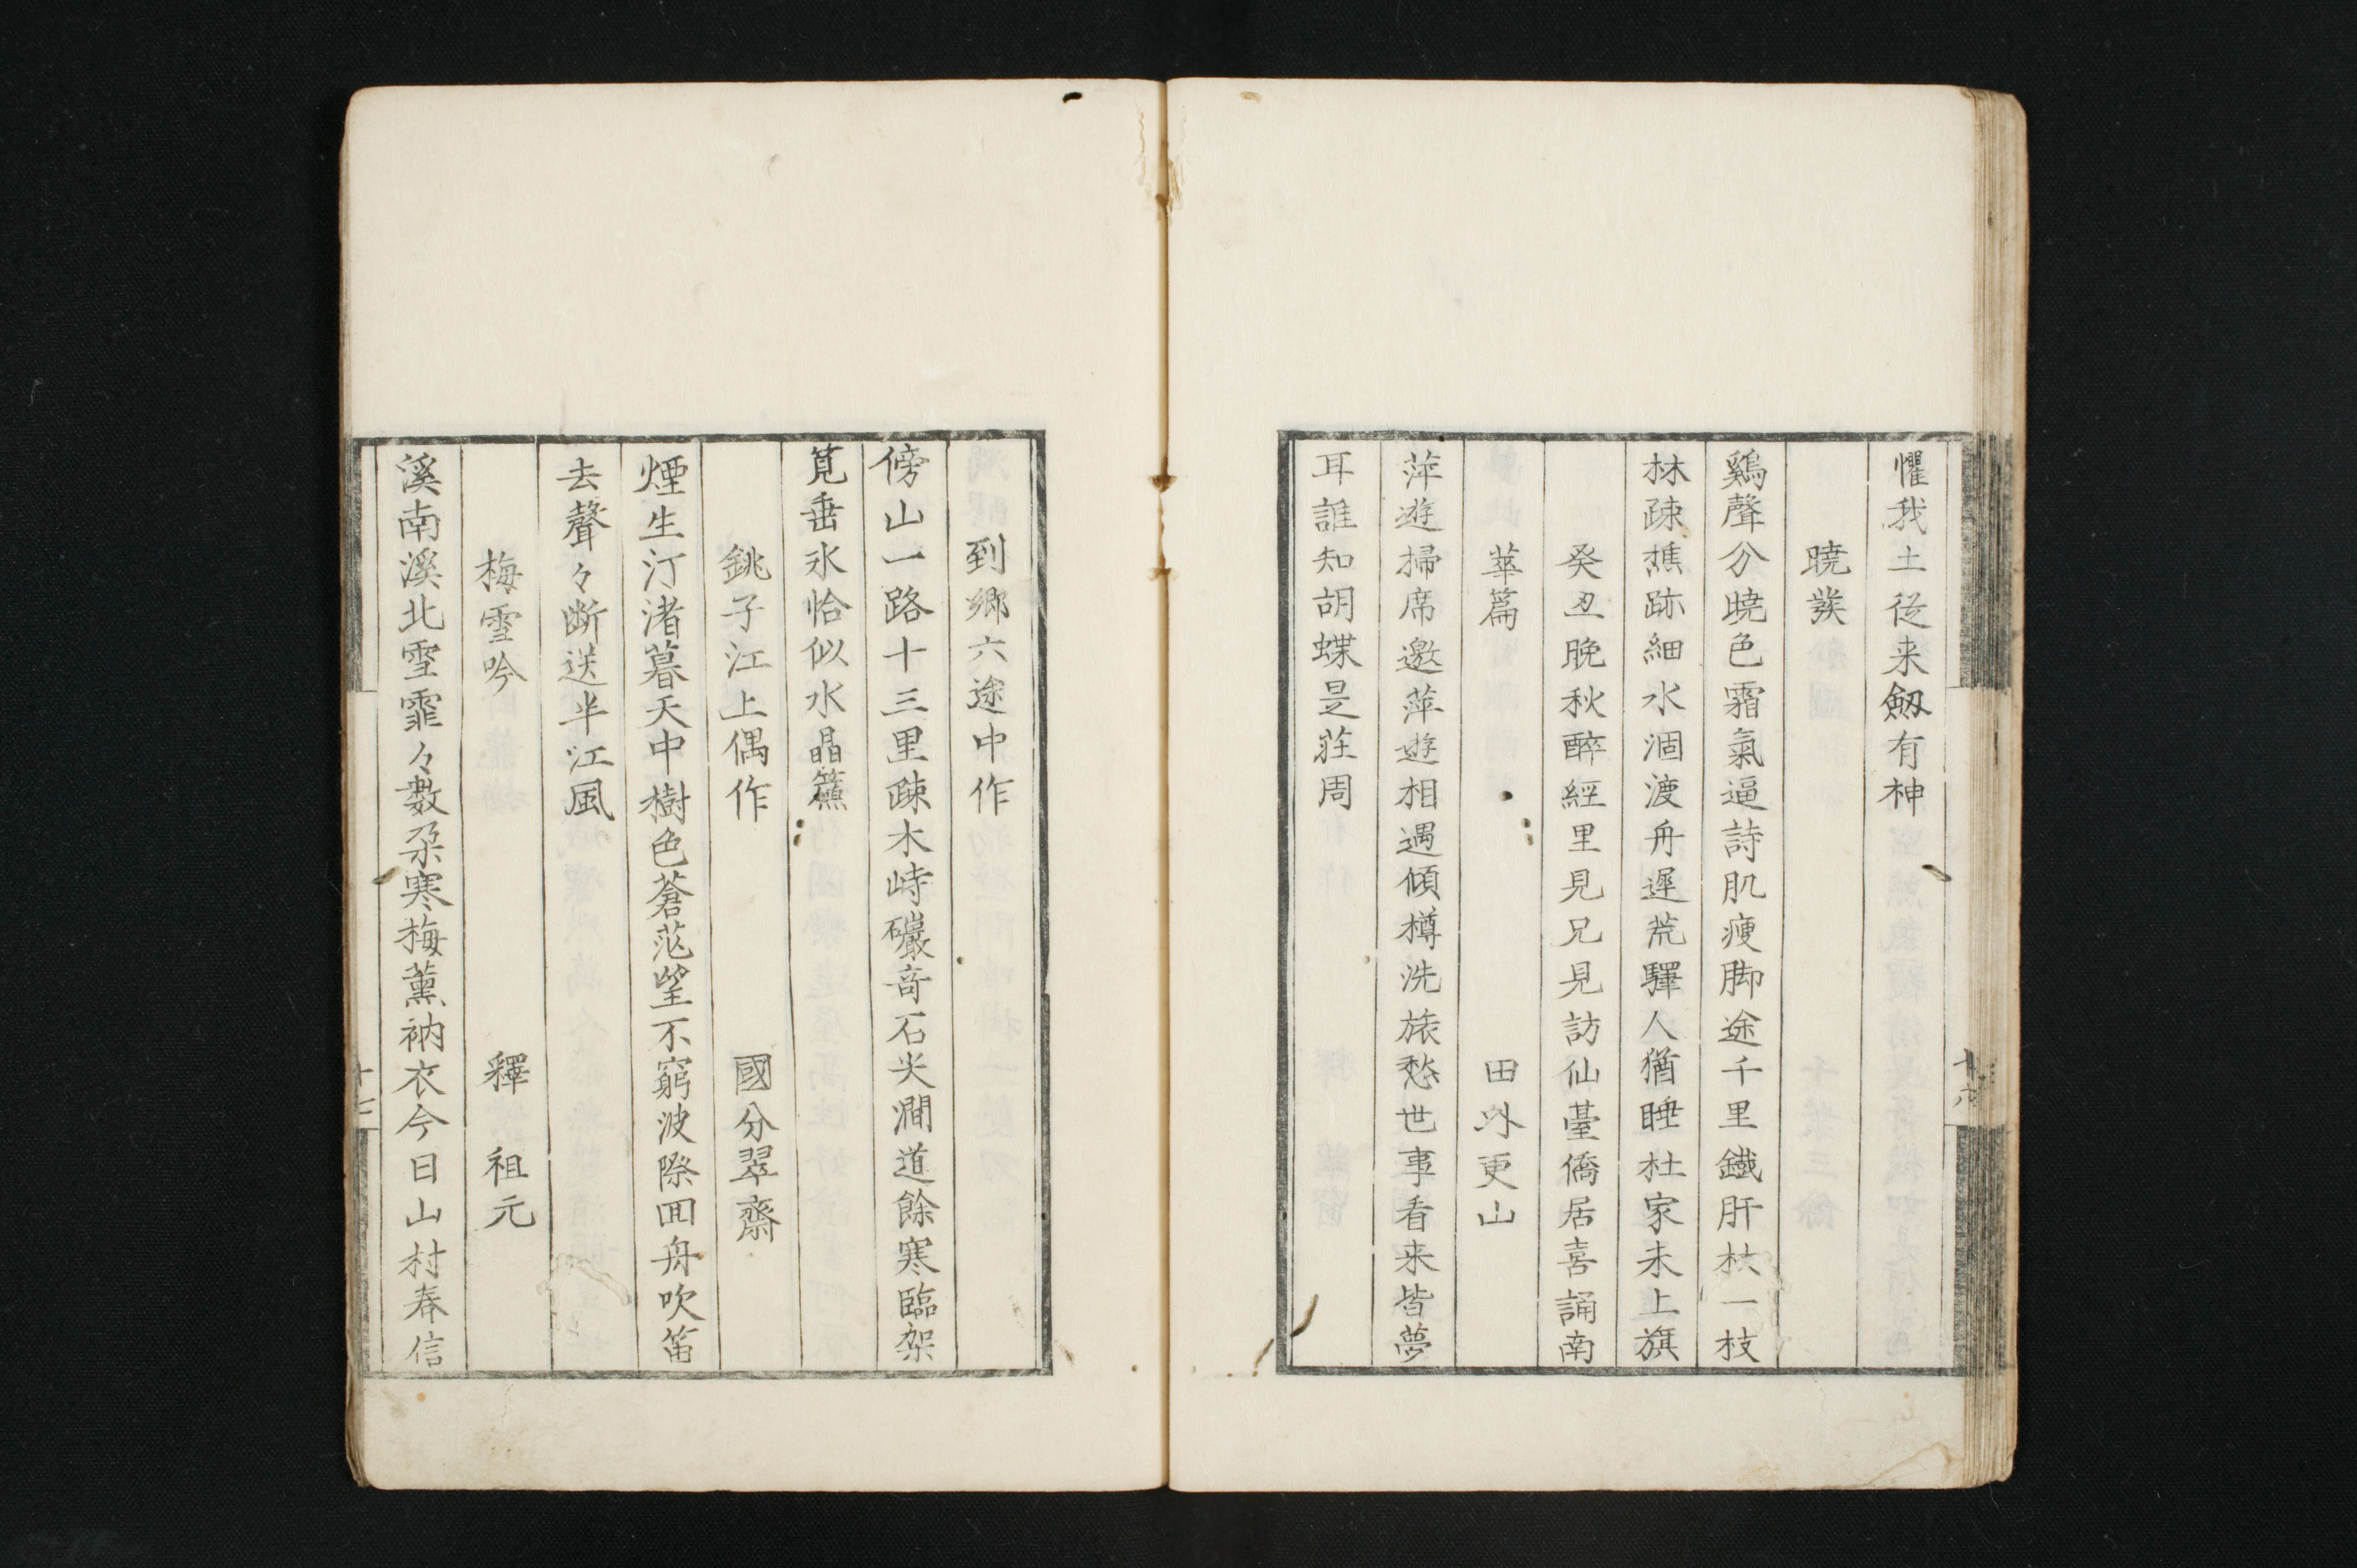 懼我土從来劔有神
曉發
鷄聲分曉色霜氣逼詩肌瘦脚途千里鐵肝杖一枝
林疎樵跡細水涸渡舟遲荒驛人猶睡杜家未上旗
癸丑晚秋醉經里見兄見訪仙臺僑居喜誦南
華篇 田外更山
萍遊掃席邀萍遊相遇傾樽洗旅愁世事看来皆夢
耳誰知胡蝶是莊周
十六
到鄉六途中作
傍山一路十三里疎木峙巖奇石尖澗道餘寒臨架
筧垂氷恰似水晶簾
銚子江上偶作 國分翠齋
煙生汀渚暮天中樹色蒼茫望不窮波際囬舟吹笛
去聲々断送半江風
梅雪吟 釋祖元
溪南溪北雪霏々數朶寒梅薰衲衣今日山村春信
十七